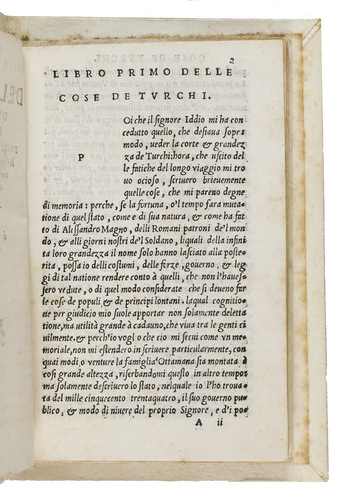 2
LIBRO PRIMO DELLE
COSE DE TVRCHI.
P Oi che il signore Iddio mi ha con
cedutto quello, che desiaua sopra
modo, ueder la corte & grandez
za de Turchi: hora, che uscito del
le fatiche del longo viaggio mi tro
uo ocioso, scriuero brieuemente
quelle cose, che mi pareno degne
di memoria: perche, se la fortuna, o'l tempo fara muta
tione di quel stato, come e di sua natura, & come ha fat
to di Alessandro Magno, delli Romani patroni de'l mon
do, & alli giorni nostri de'l Soldano, liquali della infini
ta loro grandezza il nome solo hanno lasciato alla poste
rita, possa io delli costumi, delle forze, gouerno, & leg
gi di tal natione rendere conto à quelli, che non l'haues
sero vedute, o di quel modo considerate che si deueno far
le cose de populi & de principi lontani. laqual cognitio
ne per giudicio mio suole apportar non solamente deletta
tione, ma utilità grande à cadauno, che viua tra le genti ci
uilmente. & perch'io vogl o che cio mi serui come vn me
moriale, non mi estendero in scriuere particularmente, con
quai modi o venture la famiglia Ottomana sia montata à
cosi grande altezza, riserbandomi questo in altro tempo:
ma solamente descriuero lo stato, nelquale io l'ho troua
ta del mille cinquecento trentaquatro, il suo gouerno pu
blico, & modo di uiuere del proprio Signore, e d'i po=
A ii